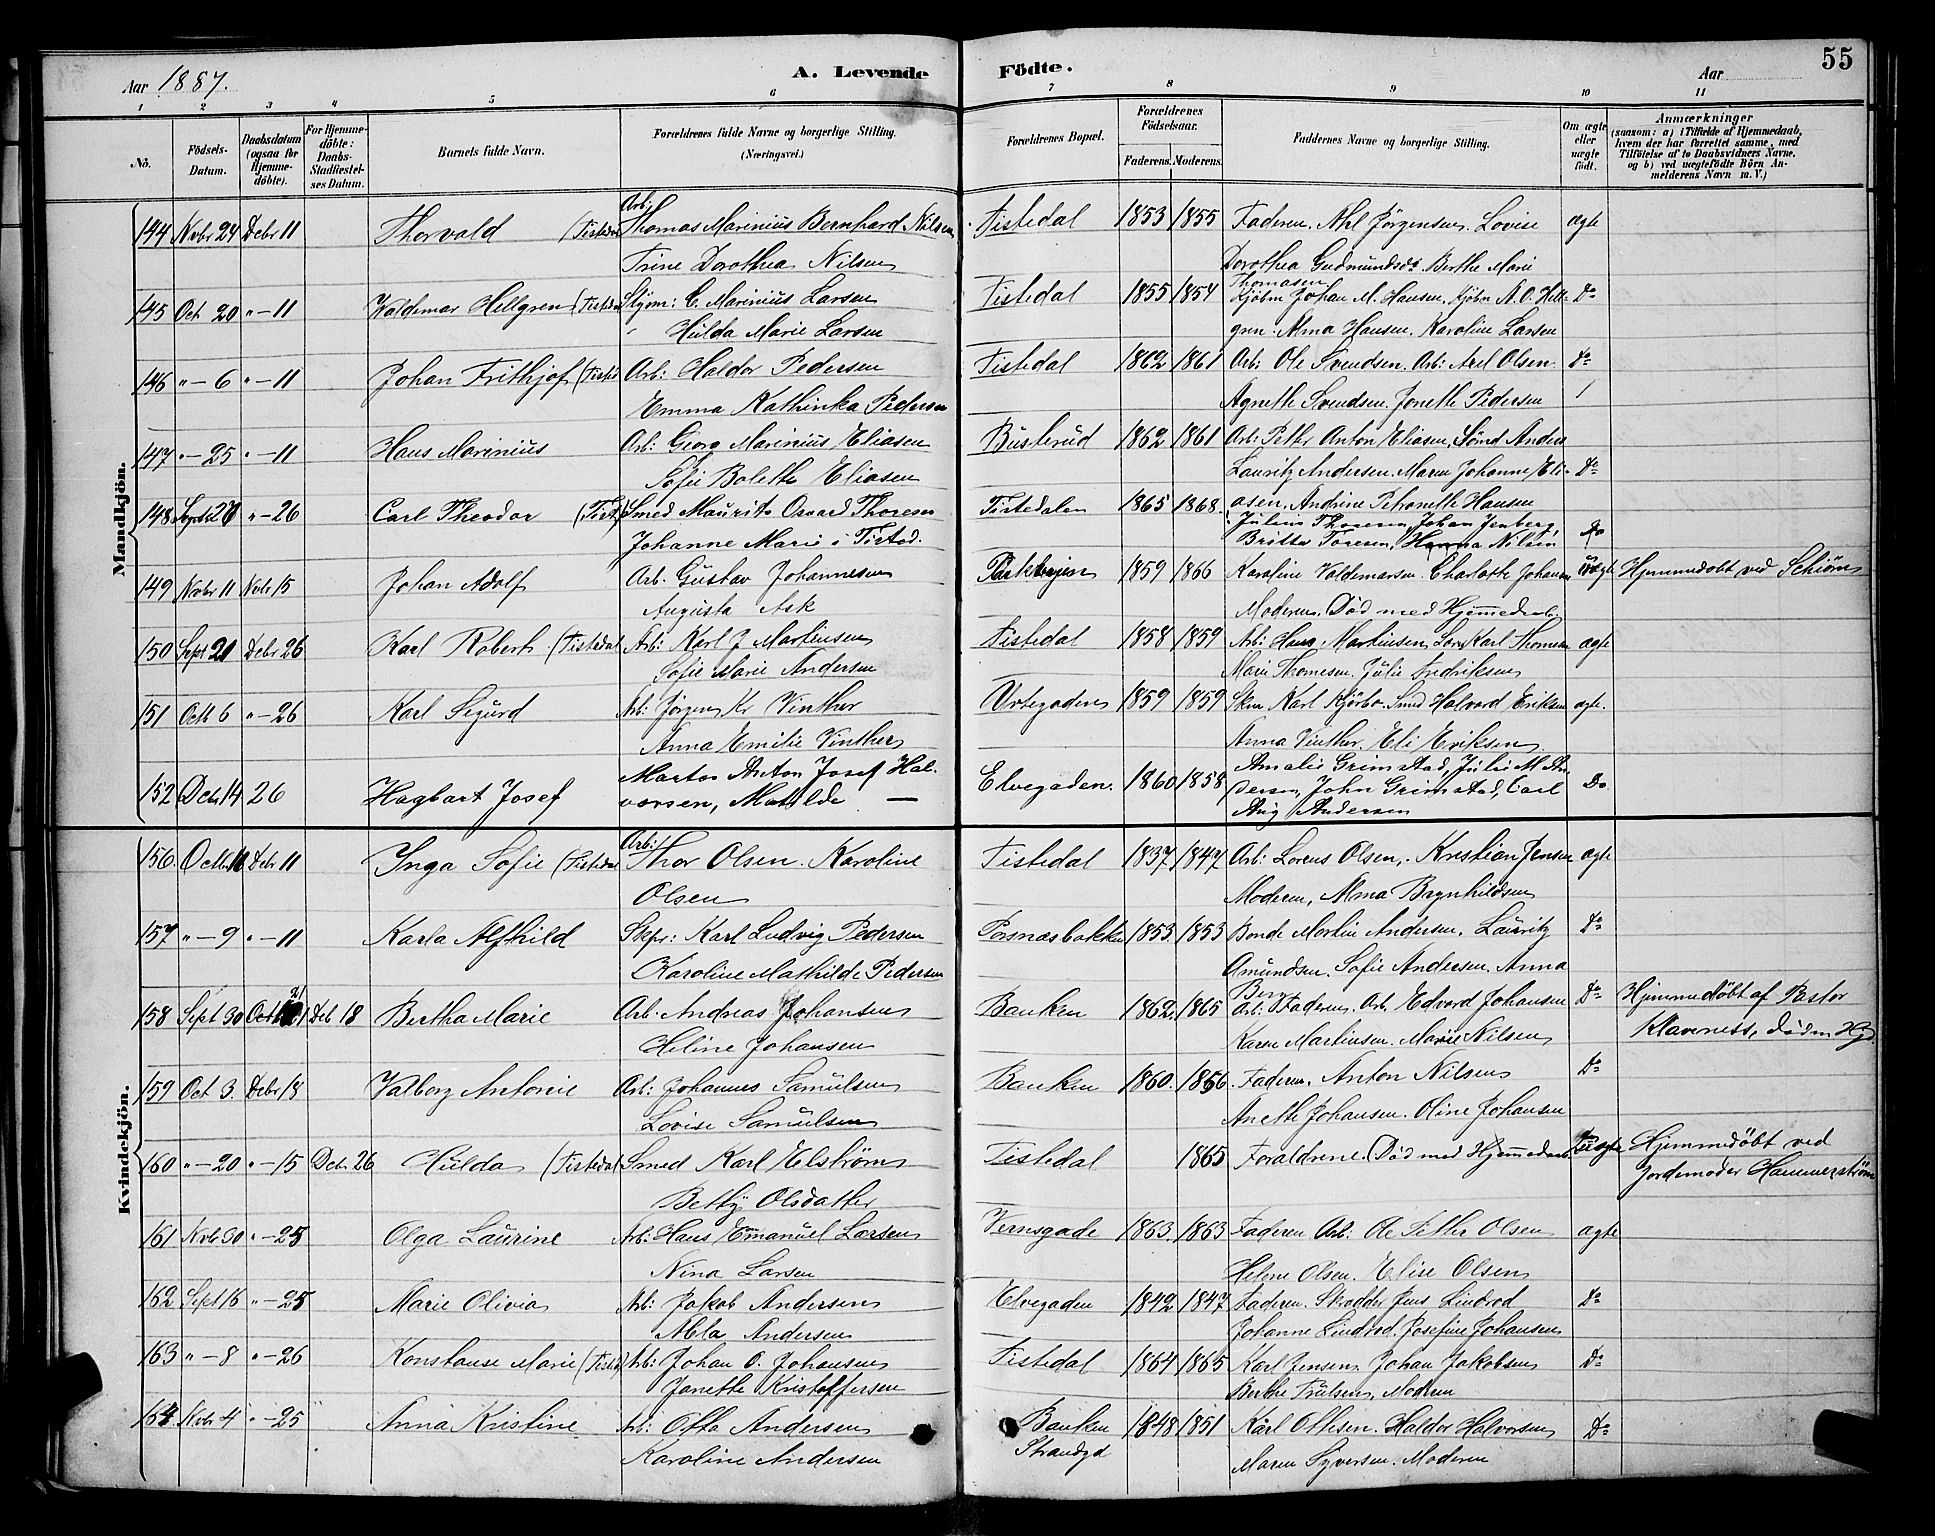 Aar 1887.
A. Levende Födte.
Aar
55
1 2 3 4 5 6 7 8 9 10 11
No.
Födsels-Datum.
Daabsdatum (ogsaa for Hjemme-döbte).
For Hjemme-döbte: Daabs-Stadfæstel-ses Datum.
Barnets fulde Navn.
Forældrenes fulde Navne og borgerlige Stilling. (Næringsvei.)
Forældrenes Bopæl.
Forældrenes Födselsaar.
Faderens. Moderens.
Faddernes Navne og borgerlige Stilling.
Om ægte eller uægte födt.
Anmærkninger
(saasom: a) i Tilfælde af Hjemmedaab, hvem der har forrettet samme, med Tilföielse af to Daabsvidners Navne, og b) ved uægtefödte Börn An-melderens Navn m. V.)
Mandkjön.
144 Nvbr 24 Debr 11 Thorvald (Tistedal Arb: Thomas Marinius Bernhard Nilsen Tistedal 1853 1855 Faderen. Ahl Jörgensen. Lovise ægte
Trine Dorothea Nilsen Dorothea Gudmundsdr Berthe Marie Thomasen
145 Oct 20 " - 11 Valdemar Hellgren (Tistedal Styrm: C. Marinius Larsen Tistedal 1855 1854 Kjöbm Johan M. Hansen. Kjöbm A. O. Hell- Do
Hulda Marie Larsen gren. Alma Hansen. Karoline Larsen
146 " - 6 " - 11 Johan Frithjof (Tisted Arb: Haldor Pedersen Tistedal 1862 1861 Arb: Ole Svendsen. Arb: Axel Olsen. Do
Emma Kathinka Pedersen Agnethe Svendsen. Jonette Pedersen
147 " - 25 " - 11 Hans Marinius Arb: Georg Marinius Eliasen Busterud 1862 1861 Arb: Peter Anton Eliasen, Sömd Anders
Sofie Bolette Eliasen Lauritz Andersen. Maren Johanne Eli- Do
148 Septb 27 " - 26 Carl Theodor (Tist) Smed Maurits Osvard Thoresen Tistedalen 1865 1868. asen. Andrine Petronelle Hansen
Johanne Marie i Tistad. Julius Thoresen, Johan Jenberg,
Britta Toresen, Hanna Nilsen Do
149 Nvbr 11 Nvbr 15 Johan Adolf Arb. Gustav Johannesen Parkvejen 1859 1866 Karoline Valdemarsen. Charlotte Johansen uægte Hjemmedöbt ved Schiöm
Augusta Ask Moderen. Död med Hjemmedaab.
150 Sept 21 Debr 26 Karl Robert (Tistedal Arb: Karl J. Martinsen Tistedal 1858 1859 Arb: Hans Martinsen, Karl Thomesen ægte
Sofie Marie Andersen Marie Thomesen. Julie Fredriksen
151 Octb 6 " - 26 Karl Sigurd Arb: Jörgen Kr Vinther Urtegaden 1859 1859 Skm Karl Kjörbo. Smed Halvord Eriksen ægte.
Anna Emilie Vinther Anna Vinther. Eli Eriksen
152 Dcb. 14 26 Hagbart Josef Anton Josef Hal- Elvegaden. 1860 1858 Amalie Grimstad, Julie M. An
vorsen, Matilde — dersen, John Grimstad, Carl Do.
Aug Andersen
Kvindekjön.
156. Octb. 16 Debr 11 Inga Sofie (Tistedal Arb: Thor Olsen. Karoline Tistedal 1837 1847 Arb: Lorens Olsen, Kristian Jensen ægte
Olsen Moderen, Alma Brynhildsen
157 " - 9 " - 11 Karla Alfhild Skpr: Karl Ludvig Pedersen Porsnæsbakken 1853. 1853 Bonde Martin Andersen. Lauritz Do
Karoline Mathilde Pedersen Amundsen. Sofie Andersen. Anna Berg
158 Sept 30 Octb 21 Deb 18 Bertha Marie Arb. Andreas Johansen Banken 1862. 1865 Arb: Faderen. Arb. Edvard Johansen Do Hjemmedöbt af Pastor
Heline Johansen Karen Martinsen. Marie Nilsen Klaveness, död m Hjd
159 Oct 3. Debr 18 Valborg Antonie Arb: Johannes Samulsen Banken 1860. 1856 Faderen. Anton Nilsen Do
Lovise Samulsen Aneth Johansen. Oline Johansen
160 " - 20 " - 15 Dcb. 26 Hulda (Tistedal Smed Karl Elström Tistedal 1865 Foraldrene. (Död med Hjemmedaab uægte Hjemmedöbt ved
Betty Olsdatter Jordemoder Hammerström
161 Nvb 30 " - 25 Olga Laurine Arb: Hans Emanuel Larsen Vernsgade 1863. 1863 Faderen Arb: Ole Petter Olsen ægte
Nina Larsen Helene Olsen. Elise Olsen
162 Sept 16 " - 25 Marie Olivia Arb: Jakob Andersen Elvegaden 1842 1847 Faderen. Skrædder Jens Lindrod Do
Alela Andersen Johanne Lindrod. Josefine Johansen
163 " - 8 " - 26 Konstanse Marie (Tisted) Arb: Johan O. Johansen Tistedal 1864 1865 Karl Jensen. Johan Jakobsen Do
Janette Kristoffersen Berthe Trulsen, Moderen
164 Nvbr 4 " - 25 Anna Kristine Arb: Otto Andersen Banken 1848 1851 Karl Ottesen. Haldor Halvorsen Do
Karoline Andersen Strandgd Maren Syversen. Moderen